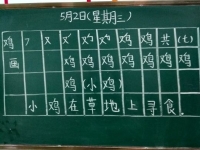 5月2日(星期三)
鸡 鸡 鸡 鸡 共(七)
画 鸡 鸡 鸡 鸡 鸡 鸡
鸡(小鸡)
小鸡在草地上寻食。